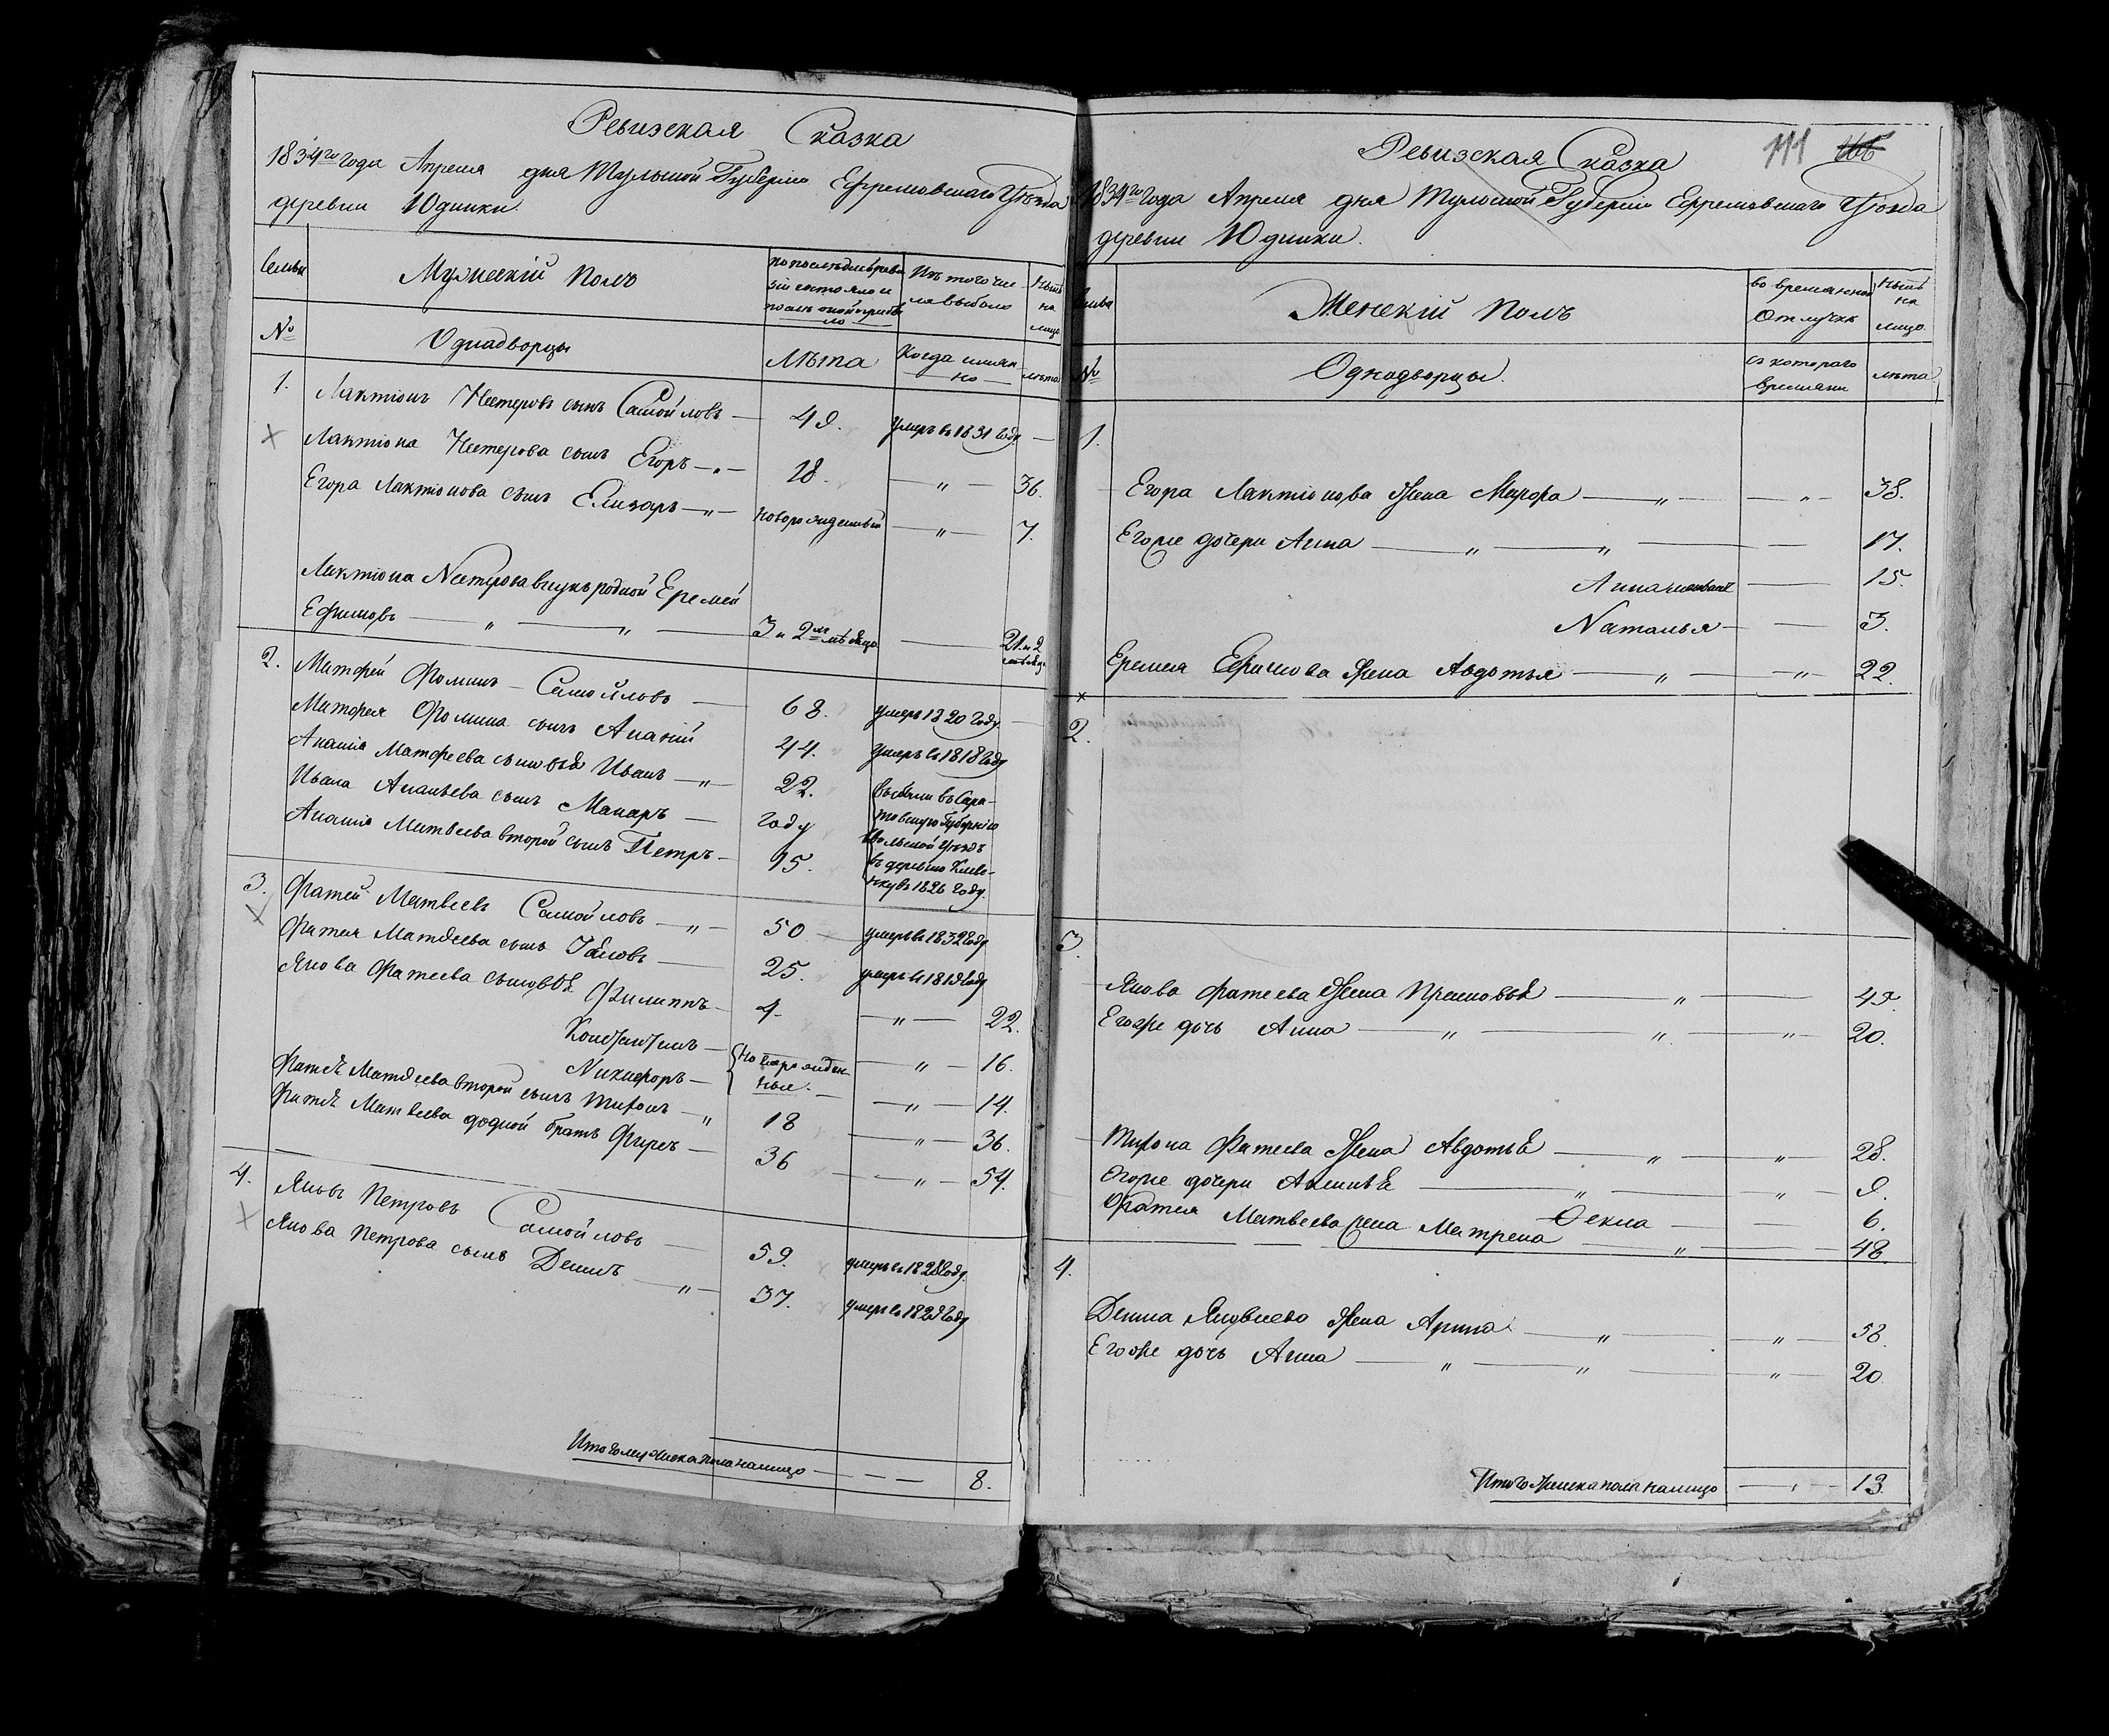 Ревизская Сказка
1834го года Апреля дня Тульской Губернiи Ефремовскаго Уѣзда
деревни Юдинки.
Семьи
Мужескiй полъ
по последней реви
зiи состояло и
после оной прибы
ло
Изъ того чис
ла выбыло
Нынѣ
на
лицо
№
Однадворцы
Лѣта
Когда имян
но
лѣта
1.
Лактiонъ Нестеровъ сынъ Самойловъ — 49. умеръ в 1831 году —
Лактiона Нестерова сынъ Егоръ — „ — 18. — „ — 36.
Егора Лактiонова сынъ Елизаръ — „ — новорожденный — „ — 7.
Лактiона Нестерова внукъ родной Еремей
Ефимовъ — „ — „ — 3 и 2 мѣсяца — 21 и 2 месяца
2.
Матфей Фоминъ — Самойловъ — 68. умеръ 1820 году —
Матфея Фомина сынъ Ананiй 44. умеръ в 1818 году
Ананiя Матфеева сыновья Иванъ — „ 22.
Ивана Ананьева сынъ Макаръ — году
Ананiя Матвеева второй сынъ Петръ — 15.
выбыли въ Сара-
товскую Губернiю
Вольской уѣздъ
въ деревню
1826 году.
3.
Фатей Матвеевъ Самойловъ — „ — 50 — умеръ в 1832 году
Фатея Матвеева сынъ Яковъ — 25. умеръ в 1819 году
Якова Фатеева сыновья Филиппъ — 4. — „ — 22.
Константинъ — новорожден- — „ — 16.
Никифоръ — ные. — „ — 14.
Фатея Матвеева второй сынъ Миронъ — „ 18 — „ — 36.
Фатея Матвеева родной братъ Фирсъ — 36 — „ — 54.
4.
Яковъ Петровъ Самойловъ — 59. умеръ в 1828 году.
Якова Петрова сынъ Деминъ — „ — 37. умеръ в 1828 году
Итого мужеска пола налицо — — — 8.
111
Ревизская Сказка
1834го года Апреля дня Тульской Губернiи Ефремовскаго Уѣзда
деревни Юдинки.
Семьи
Женскiй полъ
во временной
отлучке
Нынѣ
на
лицо
№
Однодворцы.
съ котораго
времяни
лѣта
1.
Егора Лактiонова жена Марфа — „ — „ — 38.
Егоже дочери Анна — „ — „ — 17.
Анна — 15.
Наталья — 3.
Еремея Ефимова жена Авдотья — „ — „ — 22.
2.
3.
Якова Фатеева жена — „ — 49.
Егоже дочь Анна — „ — „ — „ — 20.
Мирона Фатеева жена Авдотья — „ — „ — 28.
Егоже дочери — „ — „ — 9.
Фекла — 6.
Фатея Матвеева жена Матрена — „ — 48.
4.
Демина Яковлева жена Арина — „ — „ — 58.
Егоже дочь Анна — „ — „ — „ — 20.
Итого женска пола налицо — „ — 13.